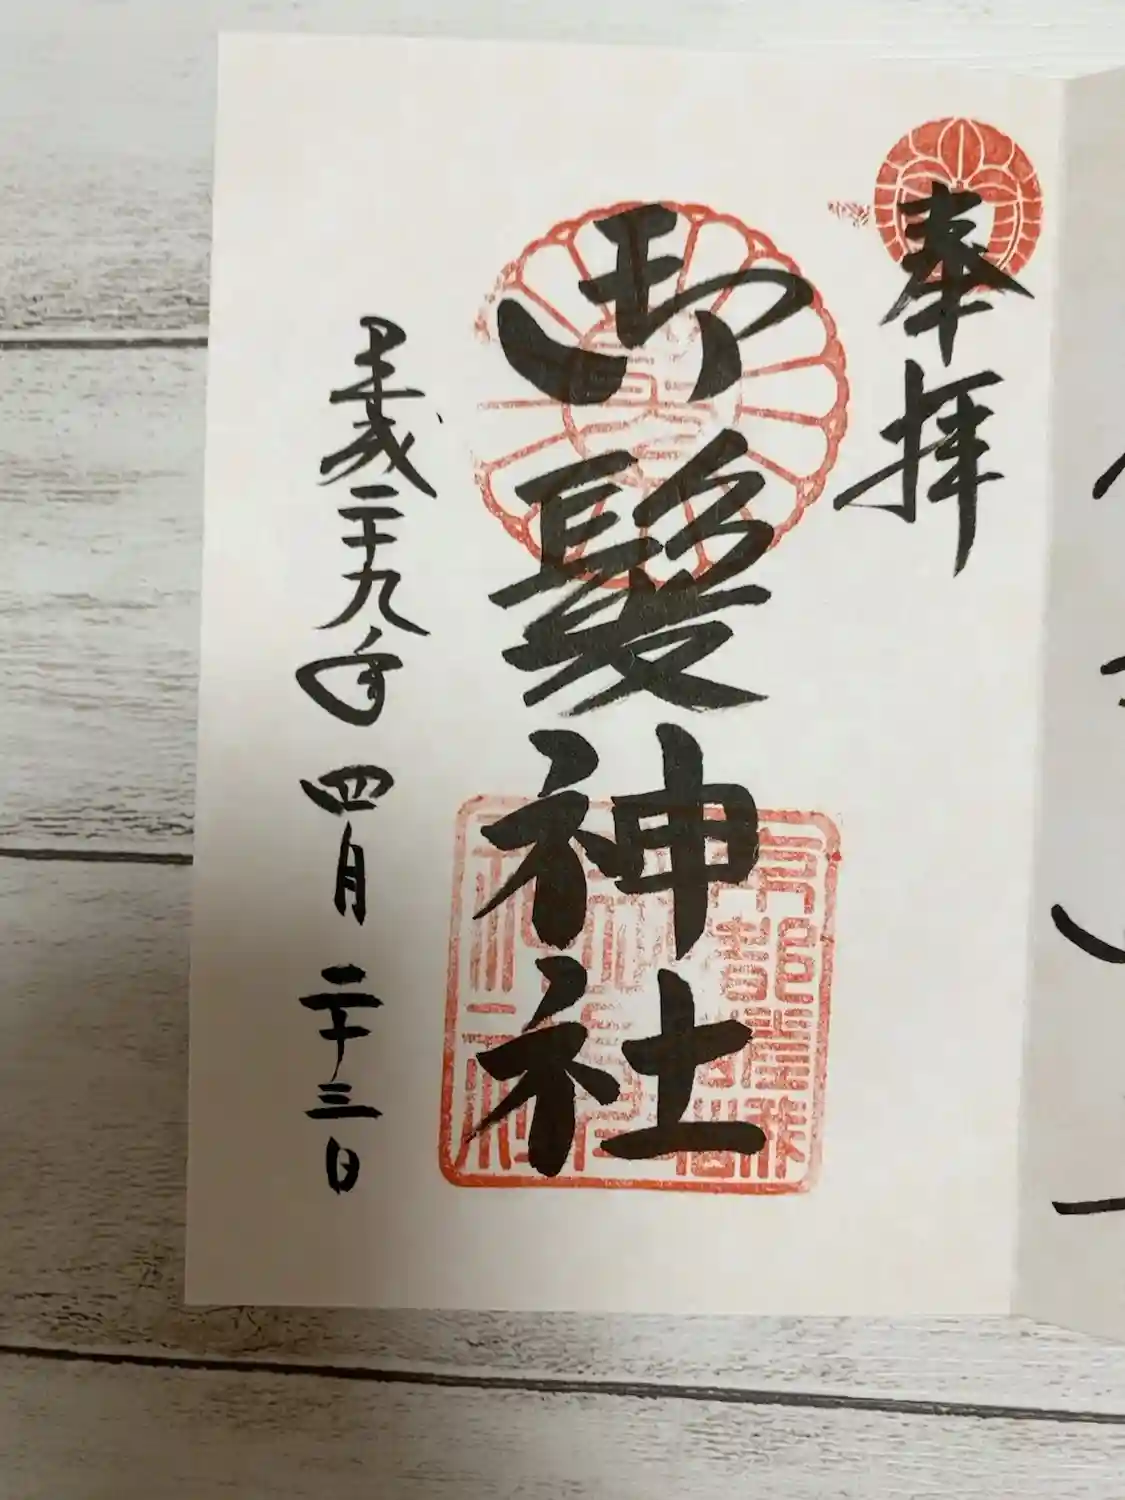 奉拝
御髪神社
平成二十九年 四月 二十三日